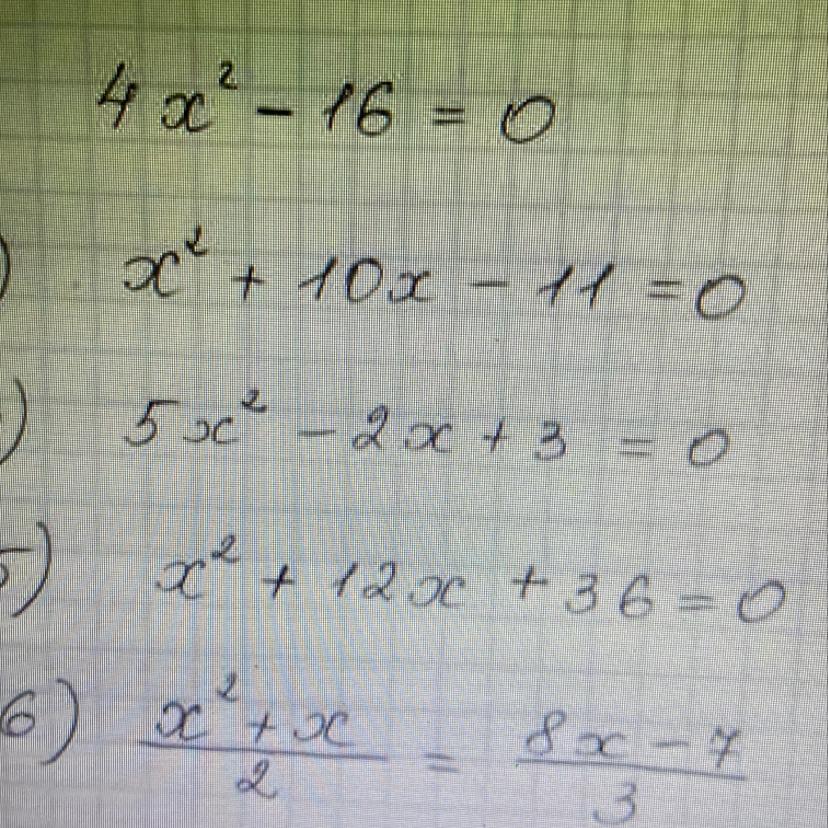 4x² - 16 = 0
) x² + 10x - 11 = 0
) 5x² - 2x + 3 = 0
5) x² + 12x + 36 = 0
6) (x² + x)/2 = (8x - 7)/3